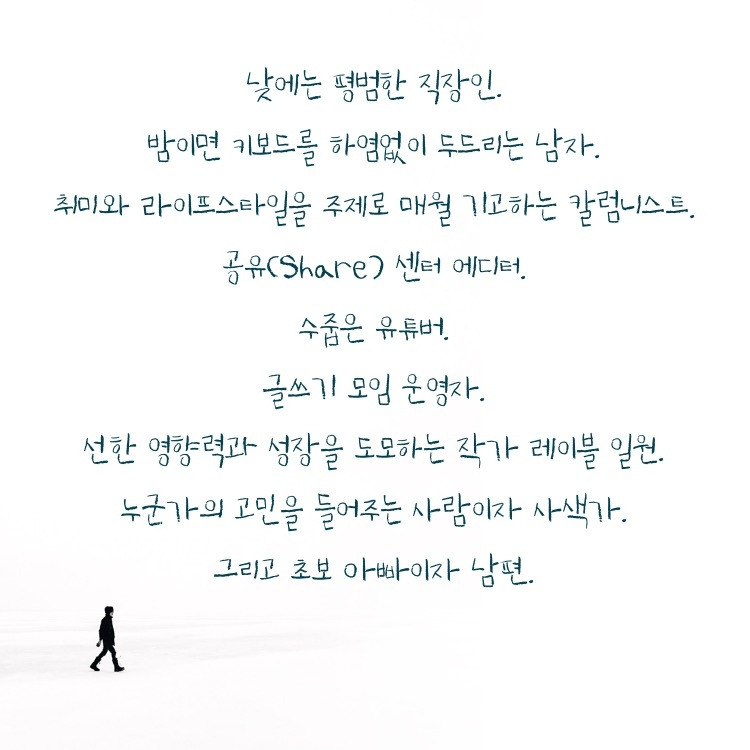 낮에는 평범한 직장인.
밤이면 키보드를 하염없이 두드리는 남자.
취미와 라이프스타일을 주제로 매월 기고하는 칼럼니스트.
공유(Share) 센터 에디터.
수줍은 유튜버.
글쓰기 모임 운영자.
선한 영향력과 성장을 도모하는 작가 레이블 일원.
누군가의 고민을 들어주는 사람이자 사색가.
그리고 초보 아빠이자 남편.